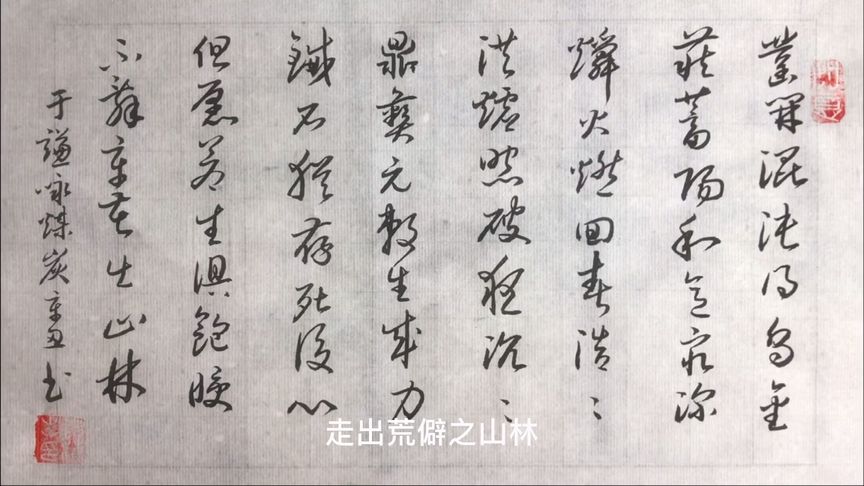 鑿開混沌得烏金
藏蓄陽和意最深
爝火燃回春浩々
洪爐照破夜沉々
鼎彝元賴生成力
鐵石猶存死後心
但愿蒼生俱飽暖
不辭辛苦出山林
于謙咏煤炭辛丑书
走出荒僻之山林